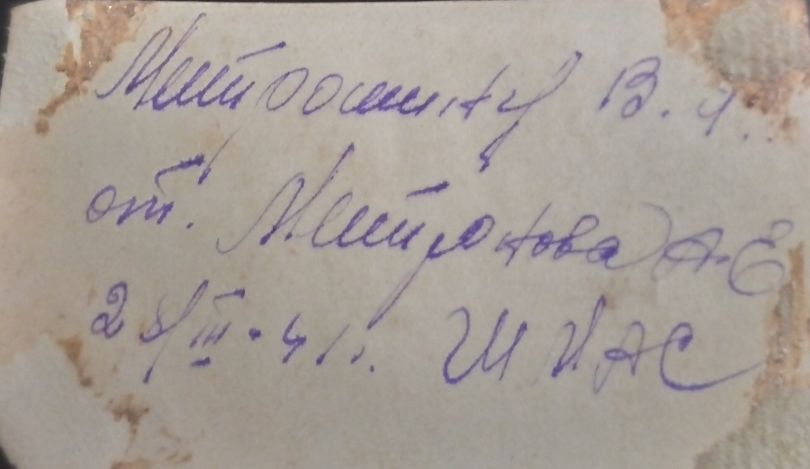 Митрошину В. И.
от. Митронова А. Е
28/III-41г. ШМАС